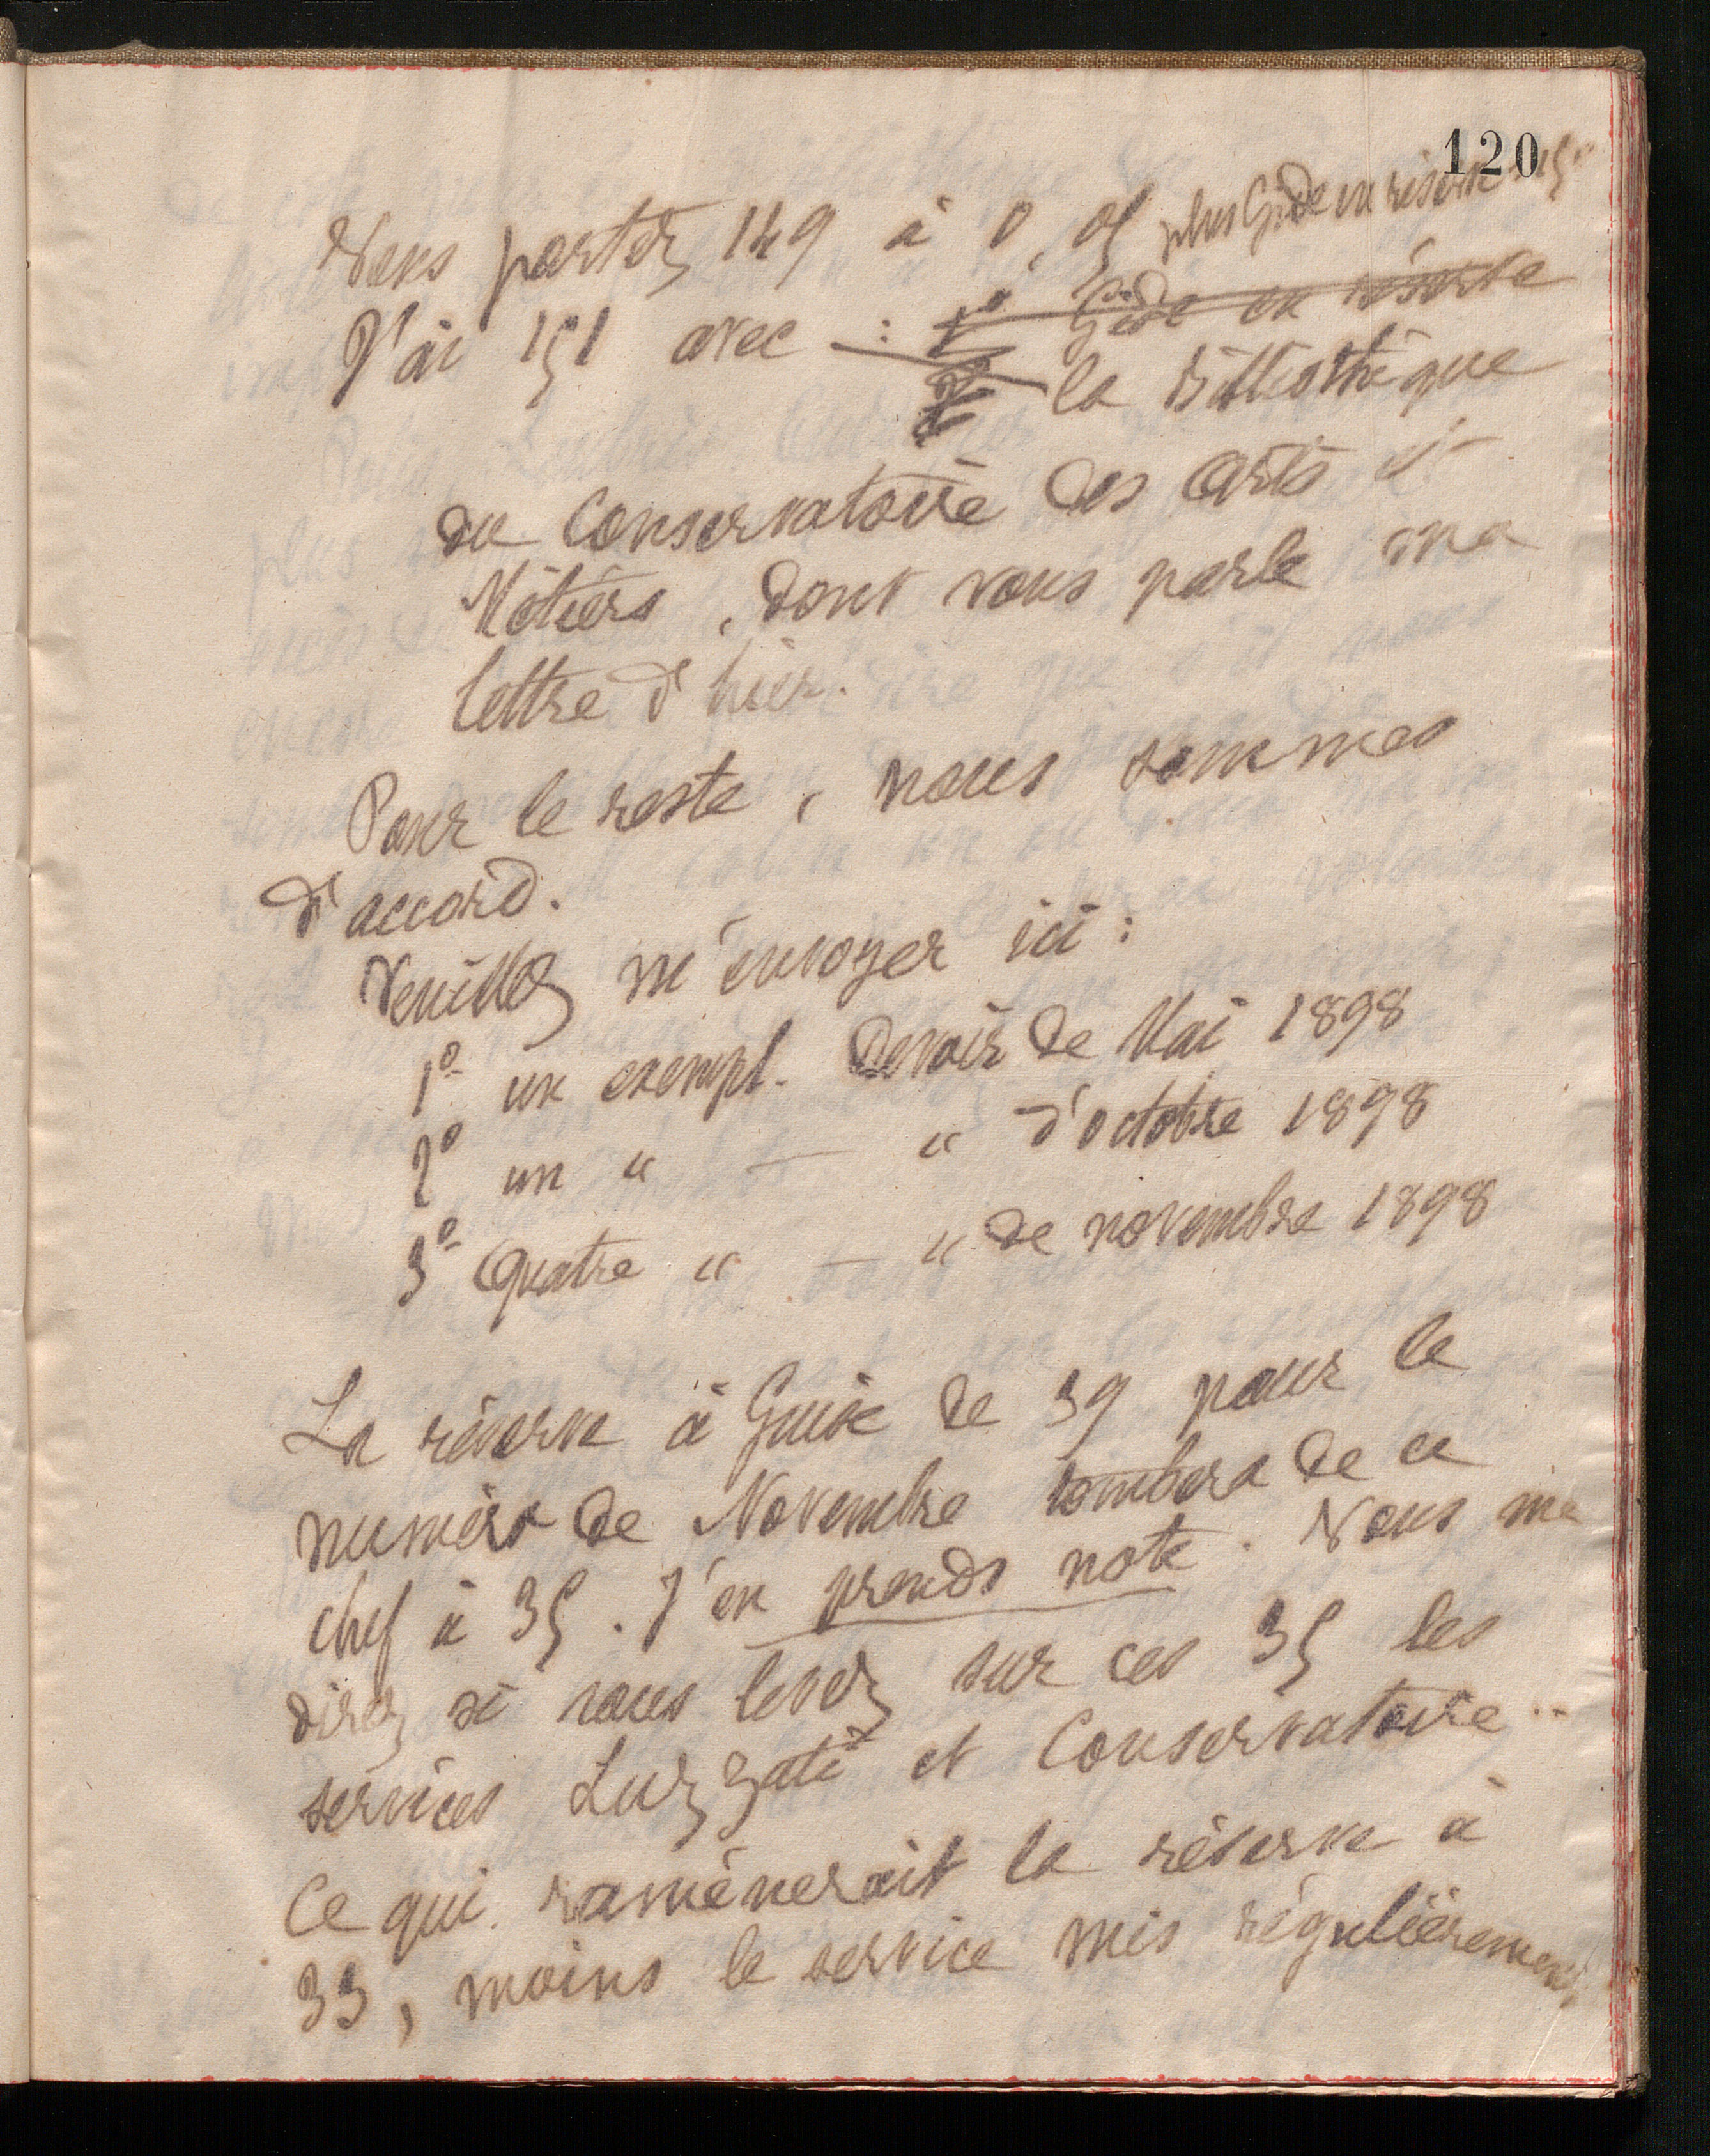 120
Vous portez 149 à 0,05 plus Gide en réserve
J'ai 151 avec : 1º Gide en réserve
2º la Bibliothèque
du Conservatoire des Arts et
Métiers, dont vous parle ma
lettre d'hier.
Pour le reste, nous sommes
d'accord.
Veuillez m'envoyer ici :
1º un exempl. Devoir de Mai 1898
2º un " — " d'octobre 1898
3º Quatre " — " de novembre 1898
La réserve à Guise de 39 pour le
numéro de Novembre tombera de ce
chef à 35. J'en prends note. Vous me
direz si vous levez sur ces 35 les
services Luzzati et Conservatoire..
Ce qui ramènerait la réserve à
33, moins le service mis régulièrement